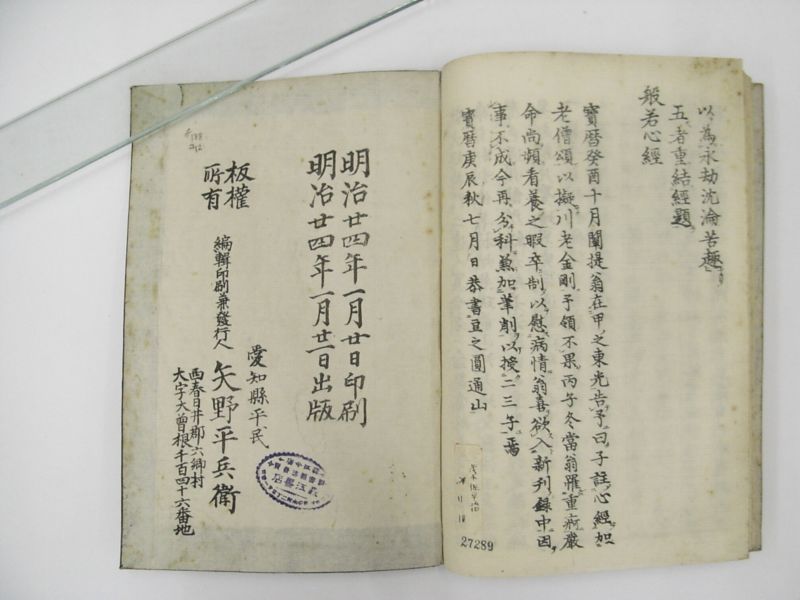 以為永劫沈淪苦趣
五者重結經題
般若心經
寶暦癸酉十月闡提翁在甲之東光告予曰子註心經加
老僧頌以擬川老金剛予領不果丙子冬當翁罹重痾嚴
命尚頻看養之暇卒制以慰病情翁喜欲入新刊録中因
事不成今再分科兼加筆削以授二三子焉
寶暦庚辰秋七月日恭書豆之圓通山
27289
明治廿四年一月廿日印刷
明治廿四年一月廿一日出版
愛知縣平民
編輯印刷兼發行人 矢野平兵衛
西春日井郡六郷村
大字大曽根千百四十六番地
板權
所有